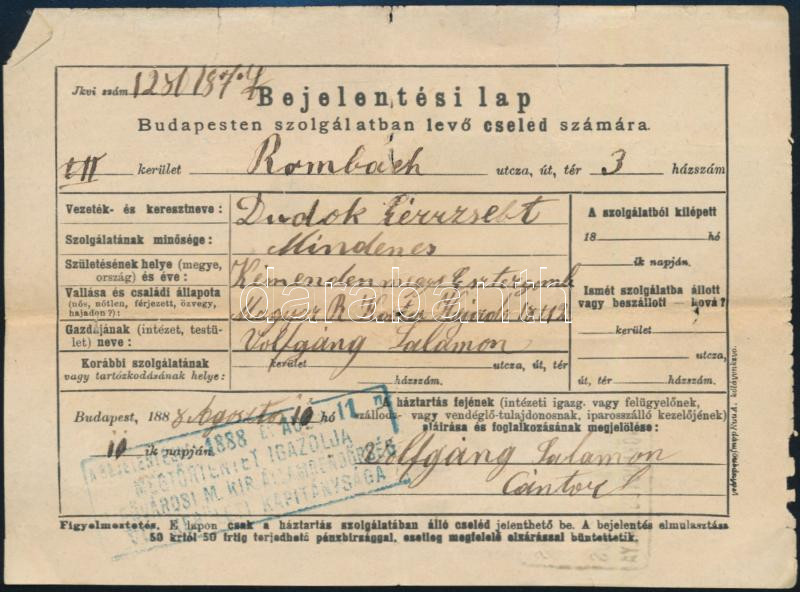 Jkvi szám
Bejelentési lap
Budapesten szolgálatban levő cseléd számára.
VII kerület Rombách utcza, út, tér 3 házszám
Vezeték- és keresztneve: Dudok
Szolgálatának minősége: Mindenes
Születésének helye (megye, ország) és éve: Kémenden megye
Vallása és családi állapota (nős, nőtlen, férjezett, özvegy, hajadon?): Magyar R
Gazdájának (intézet, testület) neve: Volfgáng Salamon
Korábbi szolgálatának vagy tartózkodásának helye:
kerület utcza, út, tér
házszám.
A szolgálatból kilépett
18 hó
ik napján.
Ismét szolgálatba állott vagy beszállott — hová?
kerület
utcza,
út, tér házszám.
Budapest, 1888 Agosto 10 hó
10 ik napján.
A háztartás fejének (intézeti igazg. vagy felügyelőnek,
szálloda- vagy vendéglő-tulajdonosnak, iparosszálló kezelőjének)
aláírása és foglalkozásának megjelölése:
Volfgáng Salamon
Cántor
1888
MEGTÖRTÉNTÉT IGAZOLJA
FŐVÁROSI M. KIR. ÁLLAMRENDŐRSÉG
KERÜLETI KAPITÁNYSÁGA
Figyelmeztetés. E lapon csak a háztartás szolgálatában álló cseléd jelenthető be. A bejelentés elmulasztása
50 krtól 50 frtig terjedhető pénzbirsággal, esetleg megfelelő elzárással büntettetik.
darabanth